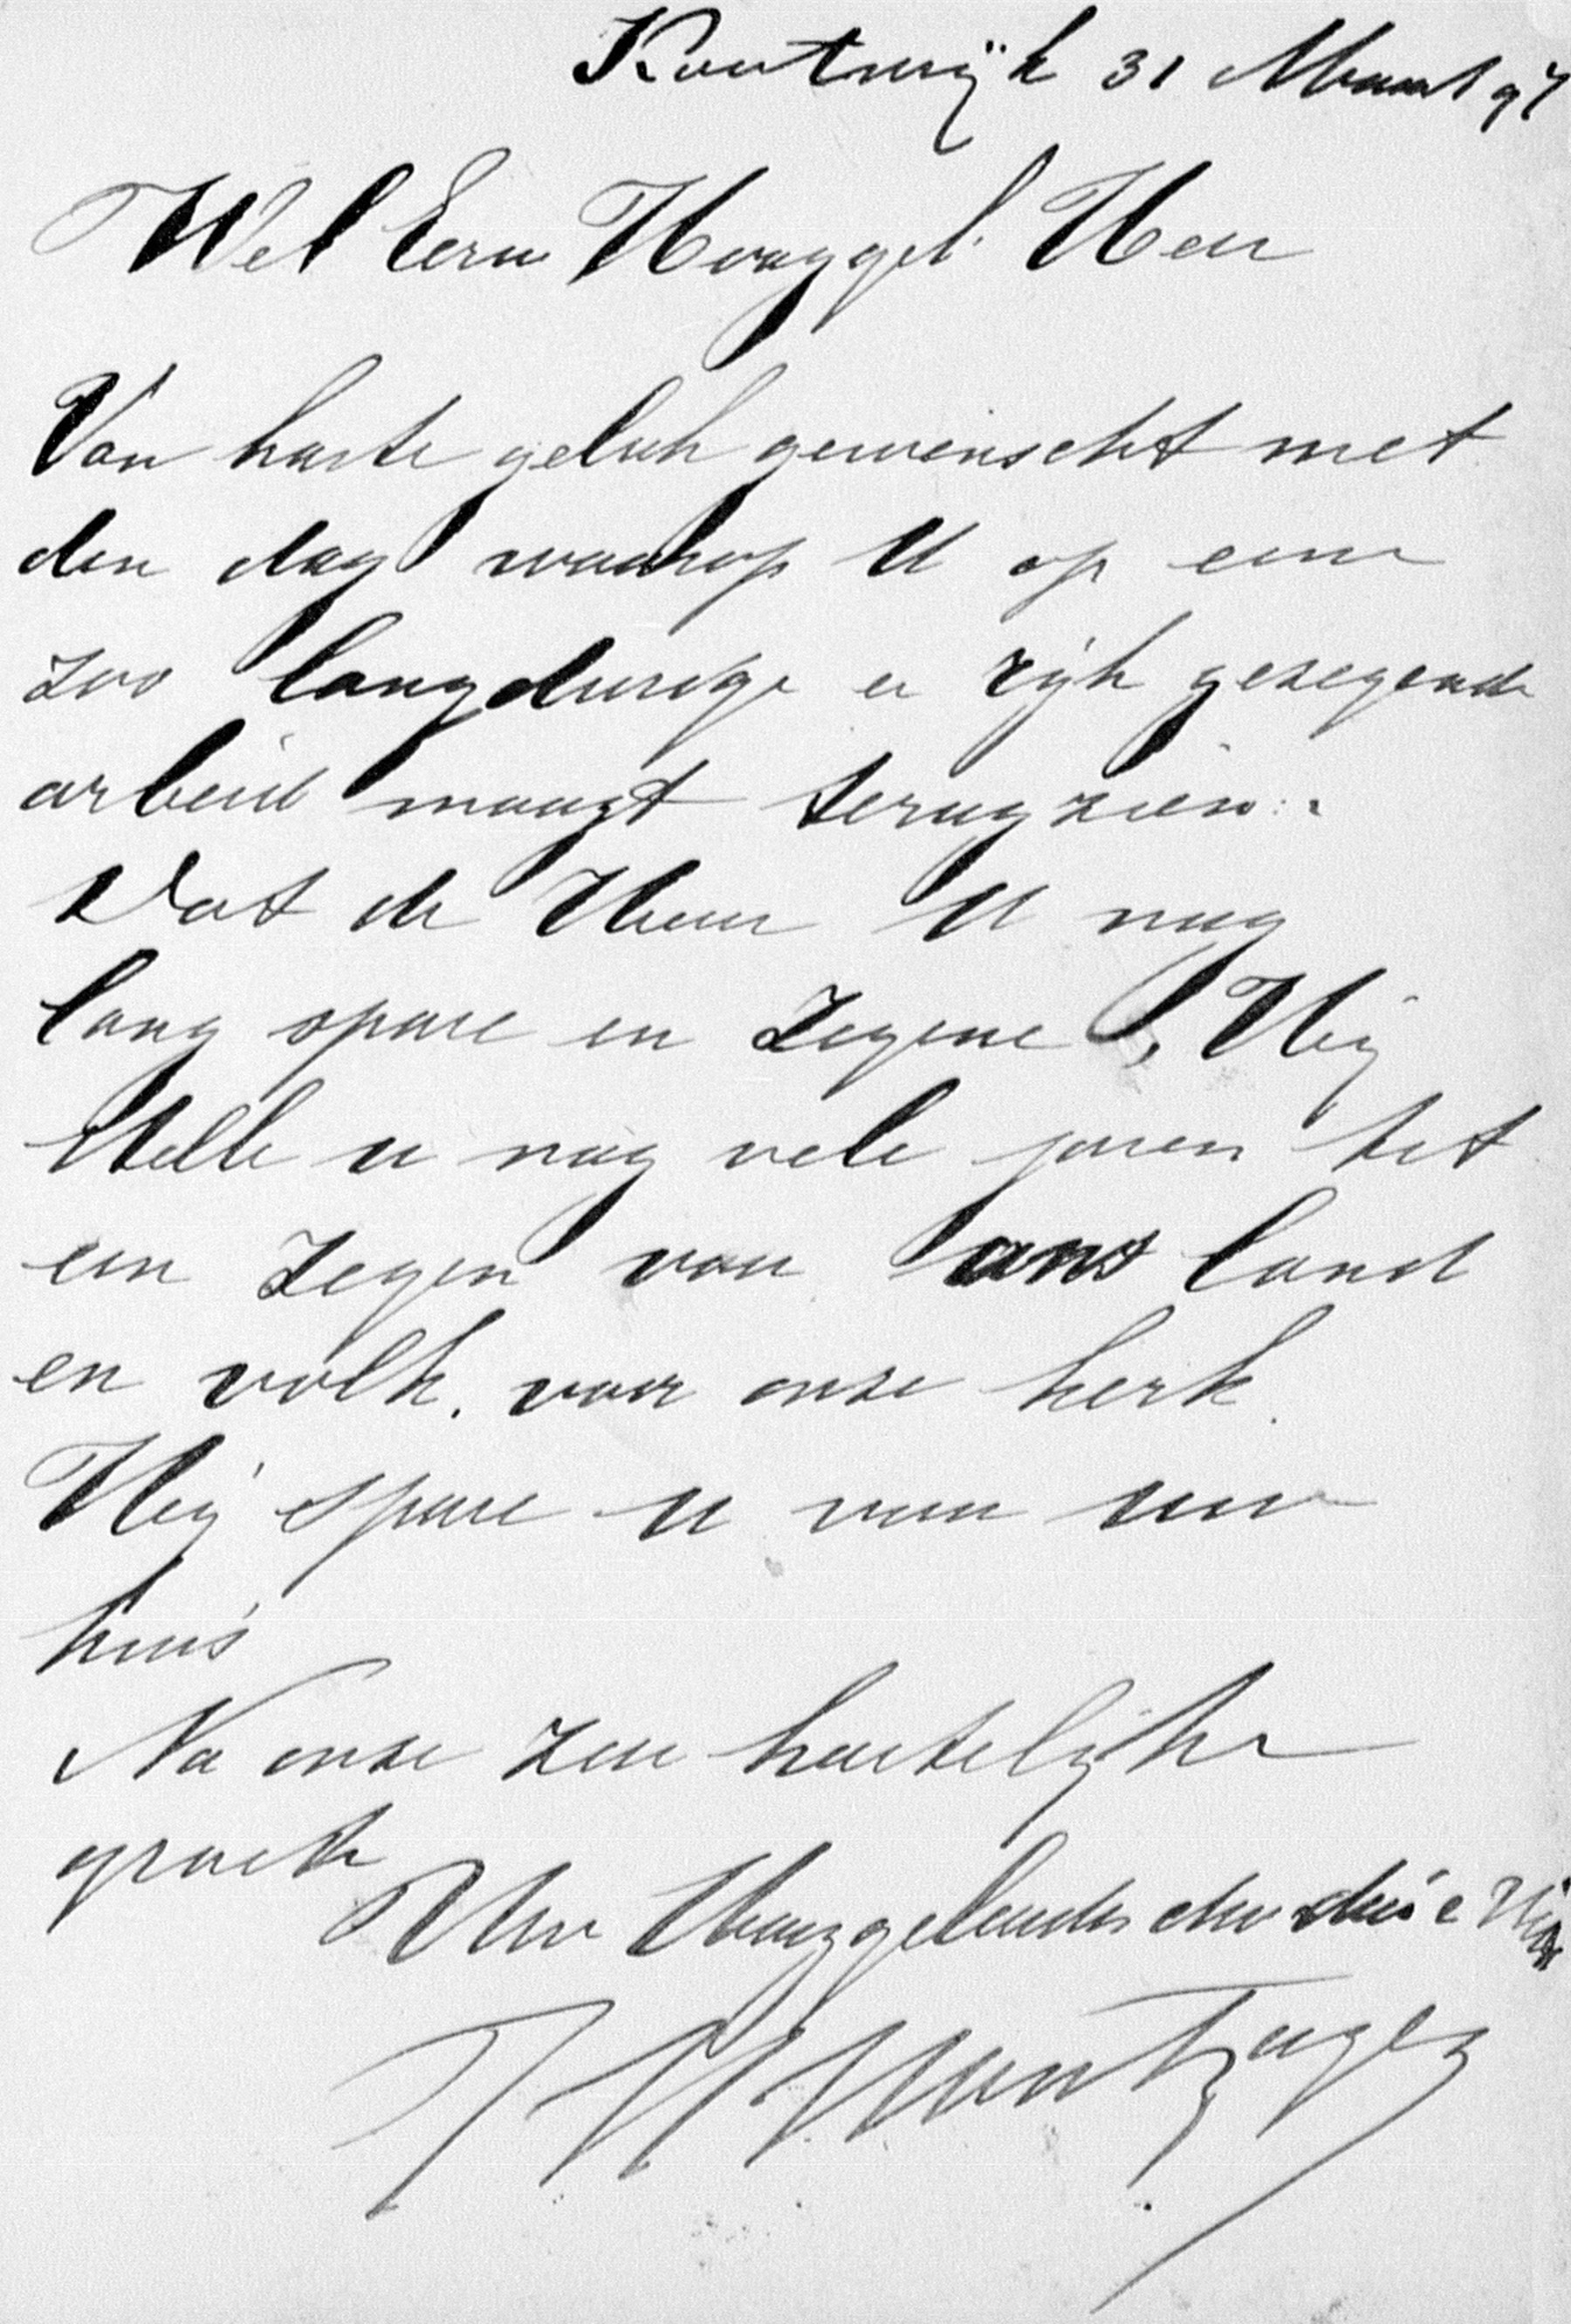 Kootwijk 31 Maart 97
Wel Eerw Hooggel. Heer
Van harte geluk gewenscht met
den dag waarop U op eene
zoo langdurige en rijk gezegende
arbeid moogt terugzien.
Dat de Heer U nog
lang spare en zegene, Hij
stelle u nog vele jaren tot
een zegen van ons land
en volk. voor onze kerk.
Hij spare u voor uw
huis
Na onze zeer hartelijke
groete
Uw Hooggeleerde